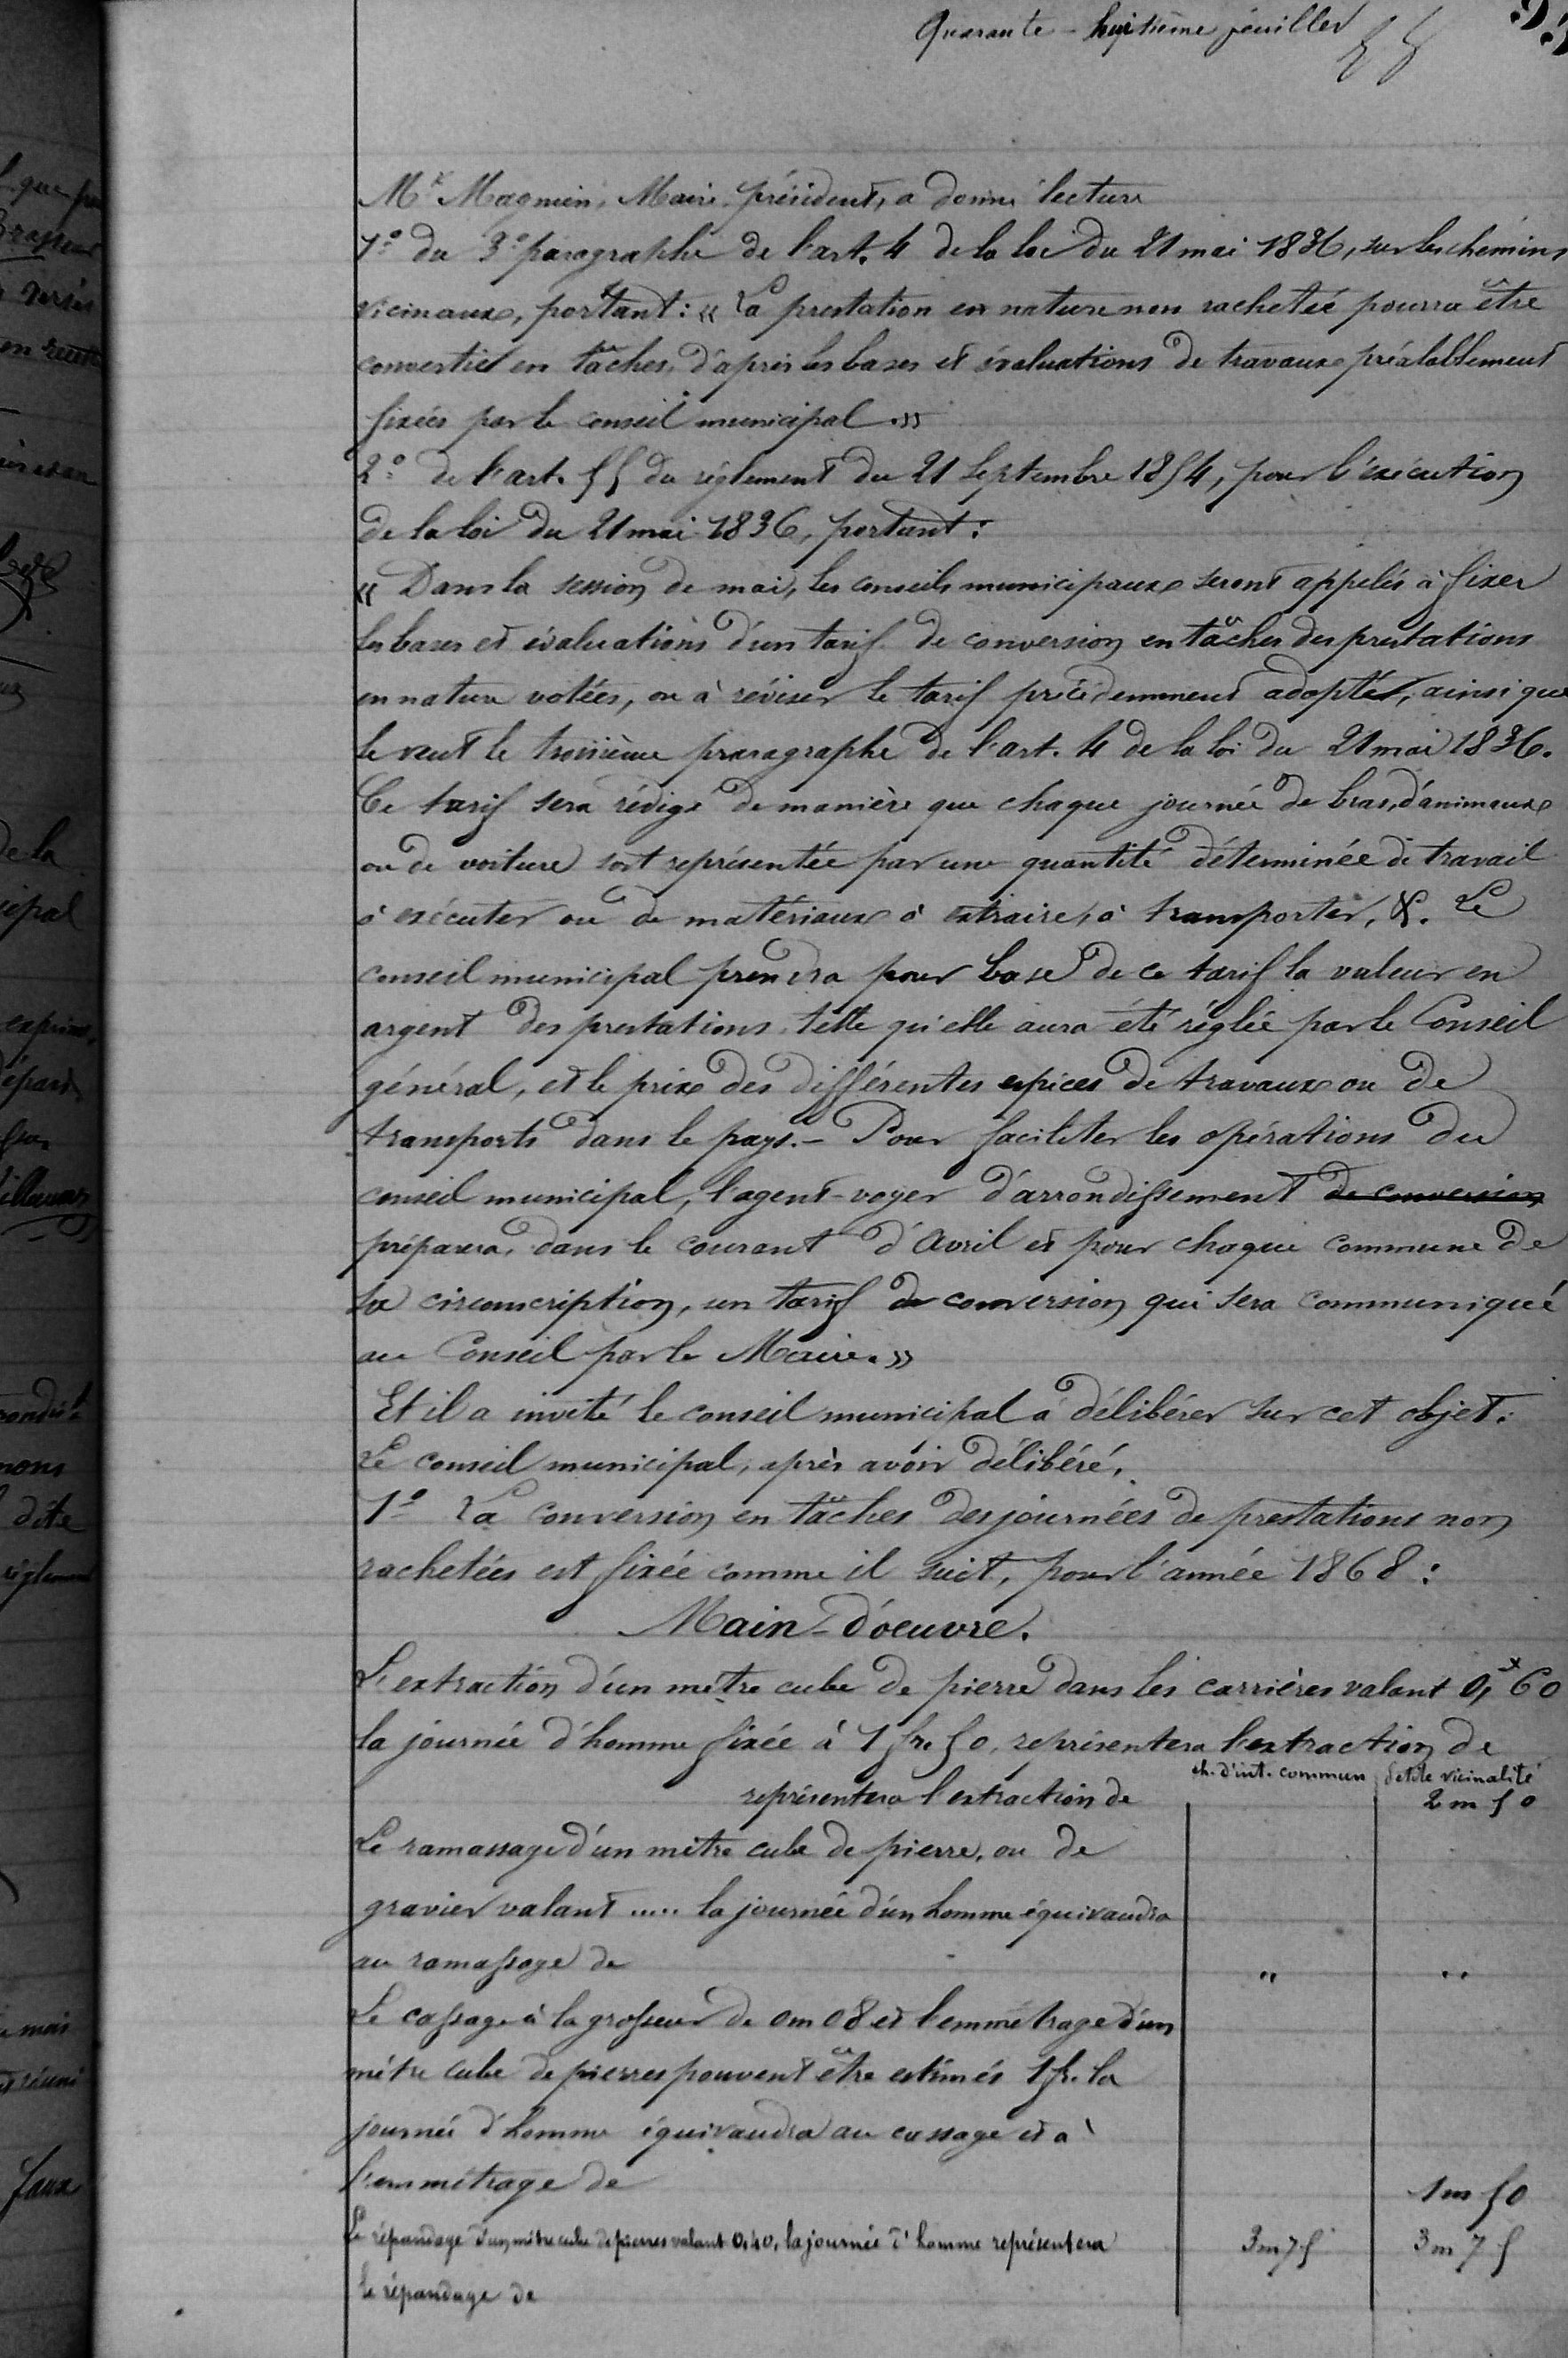 Quarante-huitième feuillet
Mr Magnien, Maire, président, a donné lecture
1º du 3º paragraphe de l'art. 4 de la loi du 21 mai 1836, sur les chemins
vicinaux, portant: « La prestation en nature non rachetée pourra être
convertie en tâches, d'après les bases et évaluations de travaux préalablement
fixées par le conseil municipal. »
2º de l'art. 55 du réglement du 21 Septembre 1854, pour l'exécution
de la loi du 21 mai 1836, portant:
« Dans la session de mai, les conseils municipaux seront appelés à fixer
les bases et évaluations d'un tarif de conversion en tâches des prestations
en nature votées, ou à réviser le tarif précédemment adopté, ainsi que
le veut le troisième praragraphe de l'art. 4 de la loi du 21 mai 1836.
Ce tarif sera rédigé de manière que chaque journée de bras, d'animaux
ou de voiture soit représentée par une quantité déterminée de travail
à exécuter ou de matériaux à extraire, à transporter, &. Le
conseil municipal prendra pour base de ce tarif la valeur en
argent des prestations, telle qu'elle aura été réglée par le Conseil
général, et le prix des différentes espices de travaux ou de
transports dans le pays. — Pour faciliter les opérations du
conseil municipal, l'agent-voyer d'arrondissement de conversion
préparera, dans le courant d'Avril et pour chaque commune de
sa circonscription, un tarif de conversion qui sera communiqué
au Conseil par le Maire. »
Et il a invité le conseil municipal à délibérer sur cet objet.
Le conseil municipal, après avoir délibéré,
1º La conversion en tâches des journées de prestations non
rachetées est fixée comme il suit, pour l'année 1868:
Main-d'oeuvre.
L'extraction d'un mètre cube de pierre dans les carrières valant 0,f 60
la journée d'homme fixée à 1 fr. 50, représentera l'extraction de
ch. d'int. commun petite vicinalité
représentera l'extraction de 2 m 50
Le ramassage d'un mètre cube de pierre, ou de
gravier valant ..... la journée d'un homme équivaudra
au ramassage de " "
Le cassage à la grosseur de 0m 08 et l'emmétrage d'un
mètre cube de pierres peuvent être estimés 1 fr. la
journée d'homme équivaudra au cassage et à
l'emmétrage de 1m 50
Le répandage d'un mètre cube de pierres valant 0,40, la journée d'homme représentera 3m 75 3m 75
le répandage de